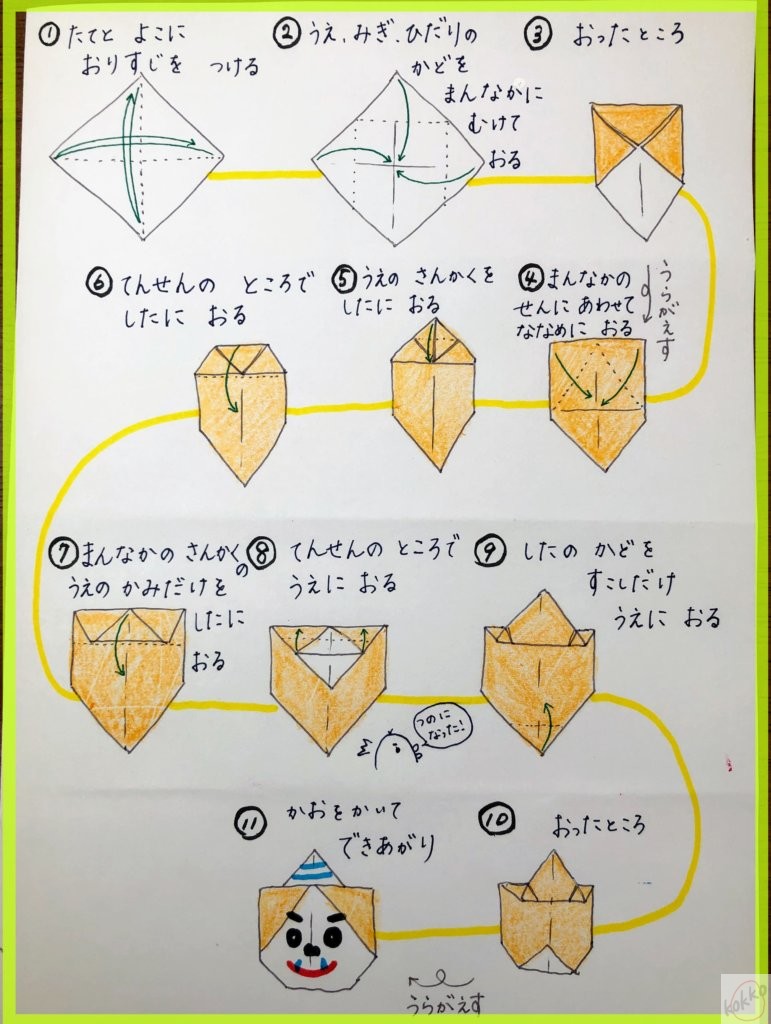 ① たてと よこに
おりすじを つける
② うえ、みぎ、ひだりの
かどを
まんなかに
むけて
おる
③ おったところ
うらがえす
④ まんなかの
せんに あわせて
ななめに おる
⑤ うえの さんかくを
したに おる
⑥ てんせんの ところで
したに おる
⑦ まんなかの さんかくの
うえの かみだけを
したに
おる
⑧ てんせんの ところで
うえに おる
つのに
なった!
⑨ したの かどを
すこしだけ
うえに おる
⑩ おったところ
うらがえす
⑪ かおをかいて
できあがり
kokko